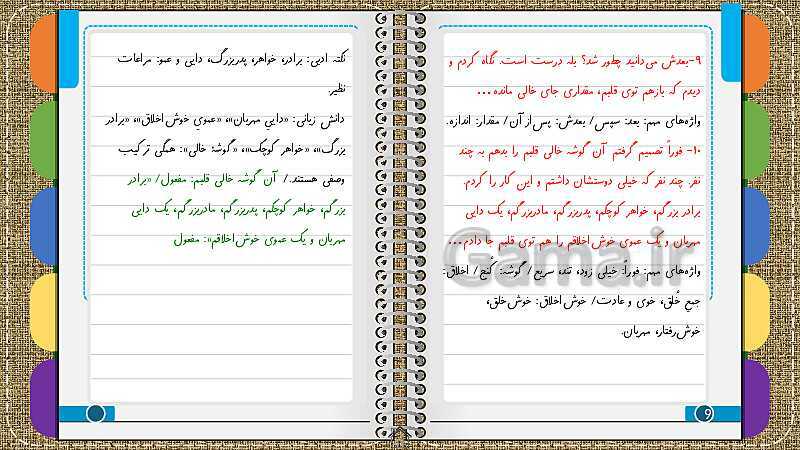 ۹-بعدش می‌دانید چطور شد؟ بله درست است. نگاه کردم و
دیدم که بازهم توی قلبم، مقداری جای خالی مانده...
واژه‌های مهم: بعد: سپس/ بعدش: پس از آن/ مقدار: اندازه.
۱۰- فوراً تصمیم گرفتم آن گوشه خالی قلبم را بدهم به چند
نفر. چند نفر که خیلی دوستشان داشتم و این کار را کردم.
برادر بزرگم، خواهر کوچکم، پدربزرگم، مادربزرگم، یک دایی
مهربان و یک عموی خوش‌اخلاقم را هم توی قلبم جا دادم...
واژه‌های مهم: فوراً: خیلی زود، تند، سریع/ گوشه: کُنج/ اخلاق:
جمعِ خُلق، خوی و عادت/ خوش‌اخلاق: خوش‌خلق،
خوش‌رفتار، مهربان.
9
نکته ادبی: برادر، خواهر، پدربزرگ، دایی و عمو: مراعات
نظیر.
دانش زبانی: «داییِ مهربان»، «عمویِ خوش‌اخلاق»، «برادر
بزرگ»، «خواهر کوچک»، «گوشهٔ خالی»: همگی ترکیب
وصفی هستند./ آن گوشه خالی قلبم: مفعول/ «برادر
بزرگم، خواهر کوچکم، پدربزرگم، مادربزرگم، یک دایی
مهربان و یک عموی خوش‌اخلاقم»: مفعول
Gama.ir